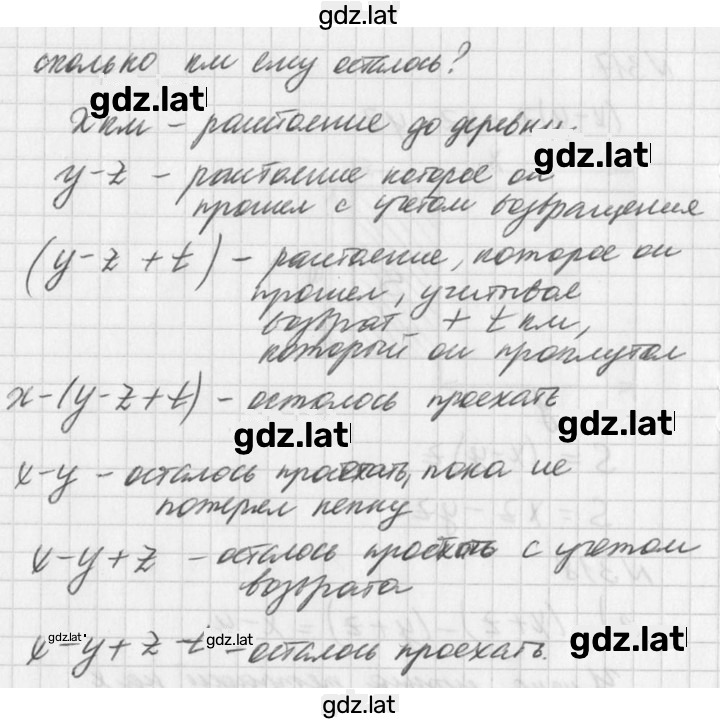 gdz.lat
сколько км ему осталось?
gdz.lat
x км – расстояние до деревни.
gdz.lat
y-z – расстояние которое он
прошел с учетом возвращения
(y-z+t) – расстояние, которое он
прошел, учитывая
возврат + t км,
который он проплутал
x-(y-z+t) – осталось проехать
gdz.lat
gdz.lat
x-y – осталось проехать, пока не
потерял кепку
x-y+z – осталось проехать с учетом
возврата
gdz.lat
gdz.lat
x-y+z-t – осталось проехать.
gdz.lat
gdz.lat